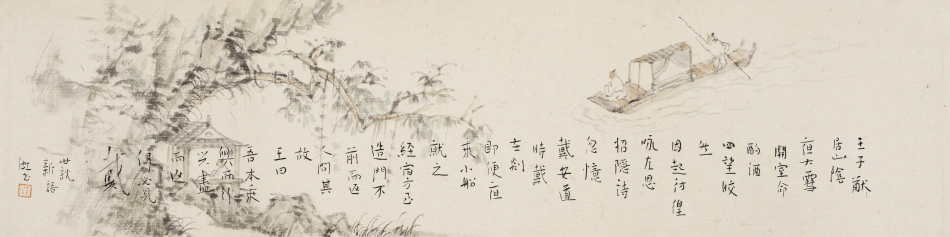 王子猷
居山陰
夜大雪
開室命
酌酒
四望皎
然
因起彷徨
咏左思
招隱詩
忽憶
戴安道
時戴
在剡
即便夜
乘小船
就之
經宿方至
造門不
前而返
人問其
故
王曰
吾本乘
興而行
兴盡
而返
何必見
世說
新語